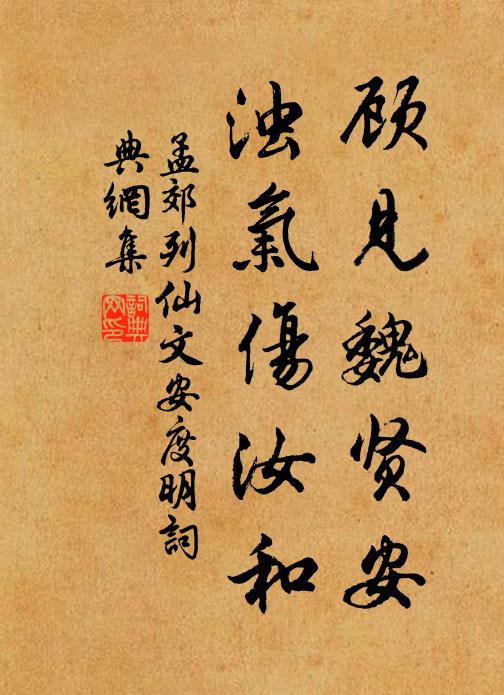 顾见魏贤安
浊氣傷汝和
孟郊列仙文安度明詞
典網集
詞典網印